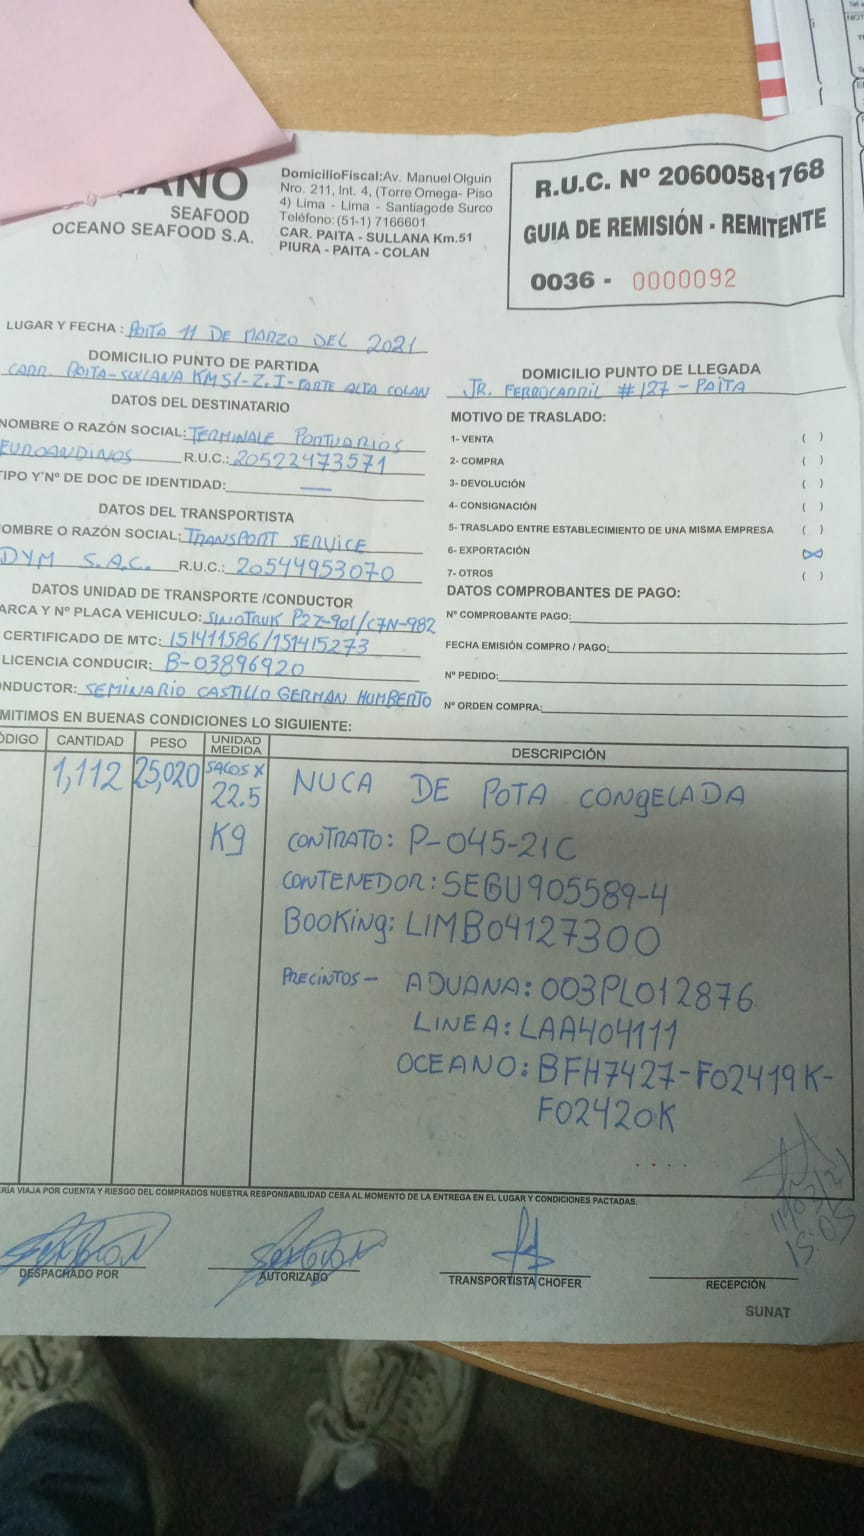 ANO
SEAFOOD
OCEANO SEAFOOD S.A.
DomicilioFiscal:Av. Manuel Olguin
Nro. 211, Int. 4, (Torre Omega- Piso
4) Lima - Lima - Santiagode Surco
Teléfono:(51-1) 7166601
CAR. PAITA - SULLANA Km.51
PIURA - PAITA - COLAN
R.U.C. Nº 20600581768
GUIA DE REMISIÓN - REMITENTE
0036 - 0000092
LUGAR Y FECHA : PAITA 11 DE MARZO DEL 2021
DOMICILIO PUNTO DE PARTIDA
CARR. PAITA-SULLANA KM 51-Z.I-PARTE ALTA COLAN
DOMICILIO PUNTO DE LLEGADA
JR. FERROCARRIL #127-PAITA
DATOS DEL DESTINATARIO
NOMBRE O RAZÓN SOCIAL: TERMINALE PORTUARIOS
EUROANDINOS R.U.C.: 20522473571
TIPO Y Nº DE DOC DE IDENTIDAD: —
DATOS DEL TRANSPORTISTA
OMBRE O RAZÓN SOCIAL: TRANSPORT SERVICE
DYM S.A.C. R.U.C.: 20544953070
DATOS UNIDAD DE TRANSPORTE /CONDUCTOR
ARCA Y Nº PLACA VEHICULO: SINOTRUK P2Z-901/C7N-982
CERTIFICADO DE MTC: 151411586/151415273
LICENCIA CONDUCIR: B-03896920
NDUCTOR: SEMINARIO CASTILLO GERMAN HUMBERTO
MOTIVO DE TRASLADO:
1- VENTA ( )
2- COMPRA ( )
3- DEVOLUCIÓN ( )
4- CONSIGNACIÓN ( )
5- TRASLADO ENTRE ESTABLECIMIENTO DE UNA MISMA EMPRESA ( )
6- EXPORTACIÓN (X)
7- OTROS ( )
DATOS COMPROBANTES DE PAGO:
Nº COMPROBANTE PAGO:
FECHA EMISIÓN COMPRO / PAGO:
Nº PEDIDO:
Nº ORDEN COMPRA:
MITIMOS EN BUENAS CONDICIONES LO SIGUIENTE:
ÓDIGO CANTIDAD PESO UNIDAD MEDIDA DESCRIPCIÓN
1,112 25,020 SACOS X
22.5
Kg
NUCA DE POTA CONGELADA
CONTRATO: P-045-21C
CONTENEDOR: SEGU905589-4
BOOKING: LIMB04127300
PRECINTOS - ADUANA: 003PL012876
LINEA: LAA404111
OCEANO: BFH7427-F02419K-
F02420K
ERÍA VIAJA POR CUENTA Y RIESGO DEL COMPRADOS NUESTRA RESPONSABILIDAD CESA AL MOMENTO DE LA ENTREGA EN EL LUGAR Y CONDICIONES PACTADAS.
15:05
DESPACHADO POR
AUTORIZADO
TRANSPORTISTA CHOFER
RECEPCIÓN
SUNAT